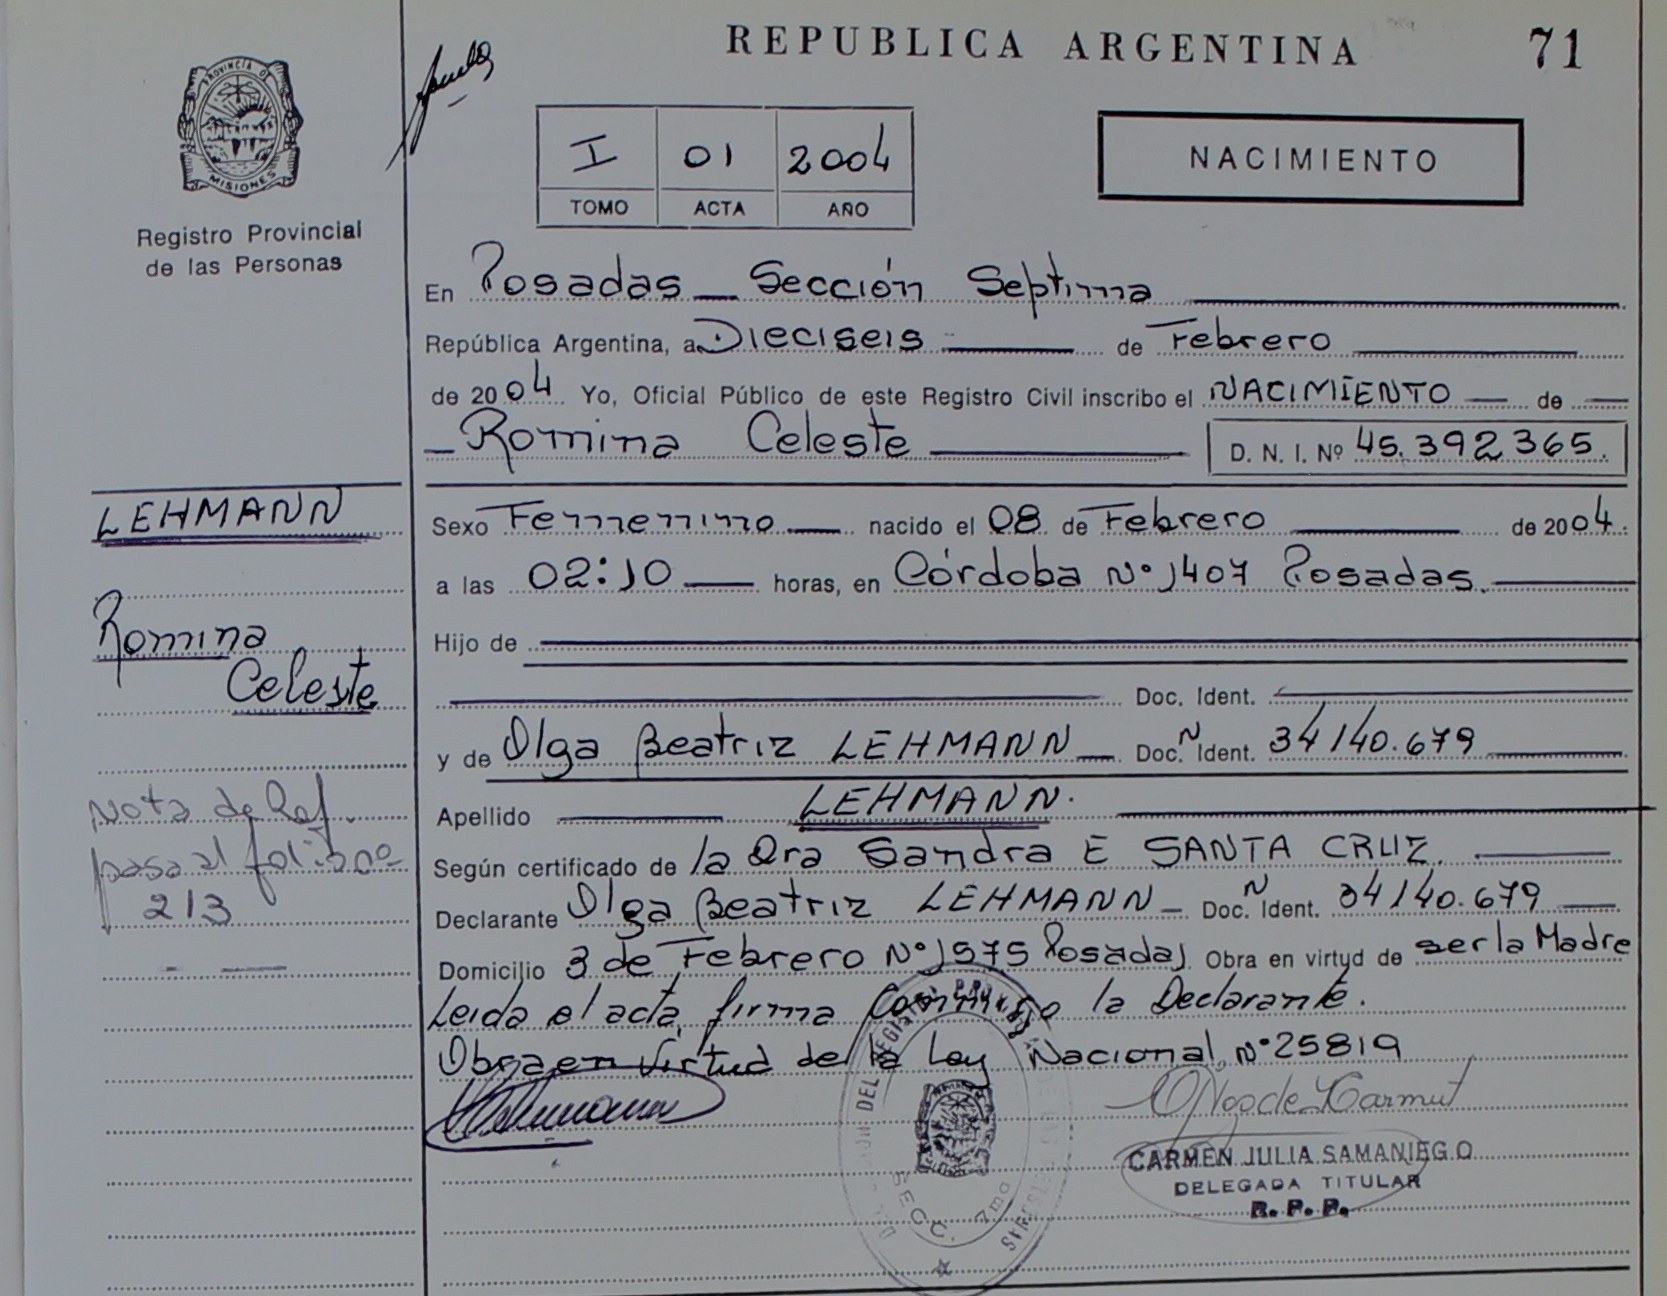 REPUBLICA ARGENTINA 71
PROVINCIA DE
MISIONES
Registro Provincial
de las Personas
I 01 2004
TOMO ACTA AÑO
NACIMIENTO
En Posadas _ Sección Septima
República Argentina, a Dieciseis de Febrero
de 2004 Yo, Oficial Público de este Registro Civil inscribo el NACIMIENTO de
Romina Celeste D. N. I. Nº 45.392.365.
LEHMANN
Romina
Celeste
Nota de Ref.
pasa al folio nº
213
Sexo Femenino nacido el 08 de Febrero de 2004.
a las 02:10 horas, en Córdoba Nº 1407 Posadas.
Hijo de
Doc. Ident.
y de Olga Beatriz LEHMANN Doc. N Ident. 34140.679
Apellido LEHMANN.
Según certificado de la Dra Sandra E SANTA CRUZ.
Declarante Olga Beatriz LEHMANN Doc. N Ident. 34140.679
Domicilio 3 de Febrero Nº 1575 Posadas Obra en virtud de ser la Madre
Leida el acta, firma Conmigo la Declarante.
Obra en Virtud de la Ley Nacional Nº 25819
SECC. 7ma
CARMEN JULIA SAMANIEGO
DELEGADA TITULAR
R. P. P.